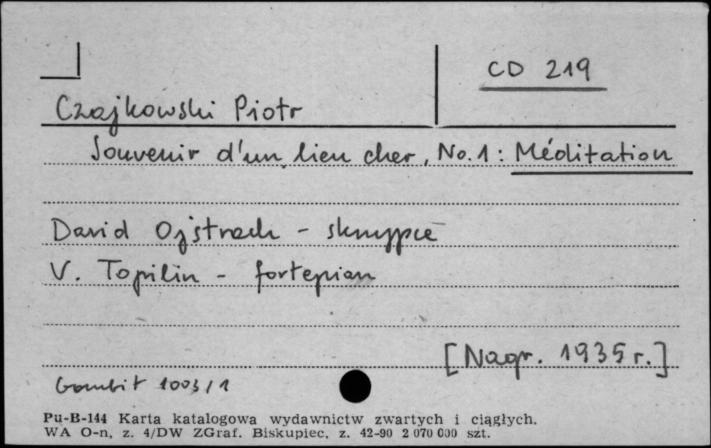 CD 219
Czajkowski Piotr
Souvenir d'un lieu cher, No. 1: Méditation
David Ojstrach - skrzypce
V. Topilin - fortepian
[Nagr. 1935 r.]
Gambit 1003/1
Pu-B-144 Karta katalogowa wydawnictw zwartych i ciągłych.
WA O-n, z. 4/DW ZGraf. Biskupiec, z. 42-90 2 070 000 szt.